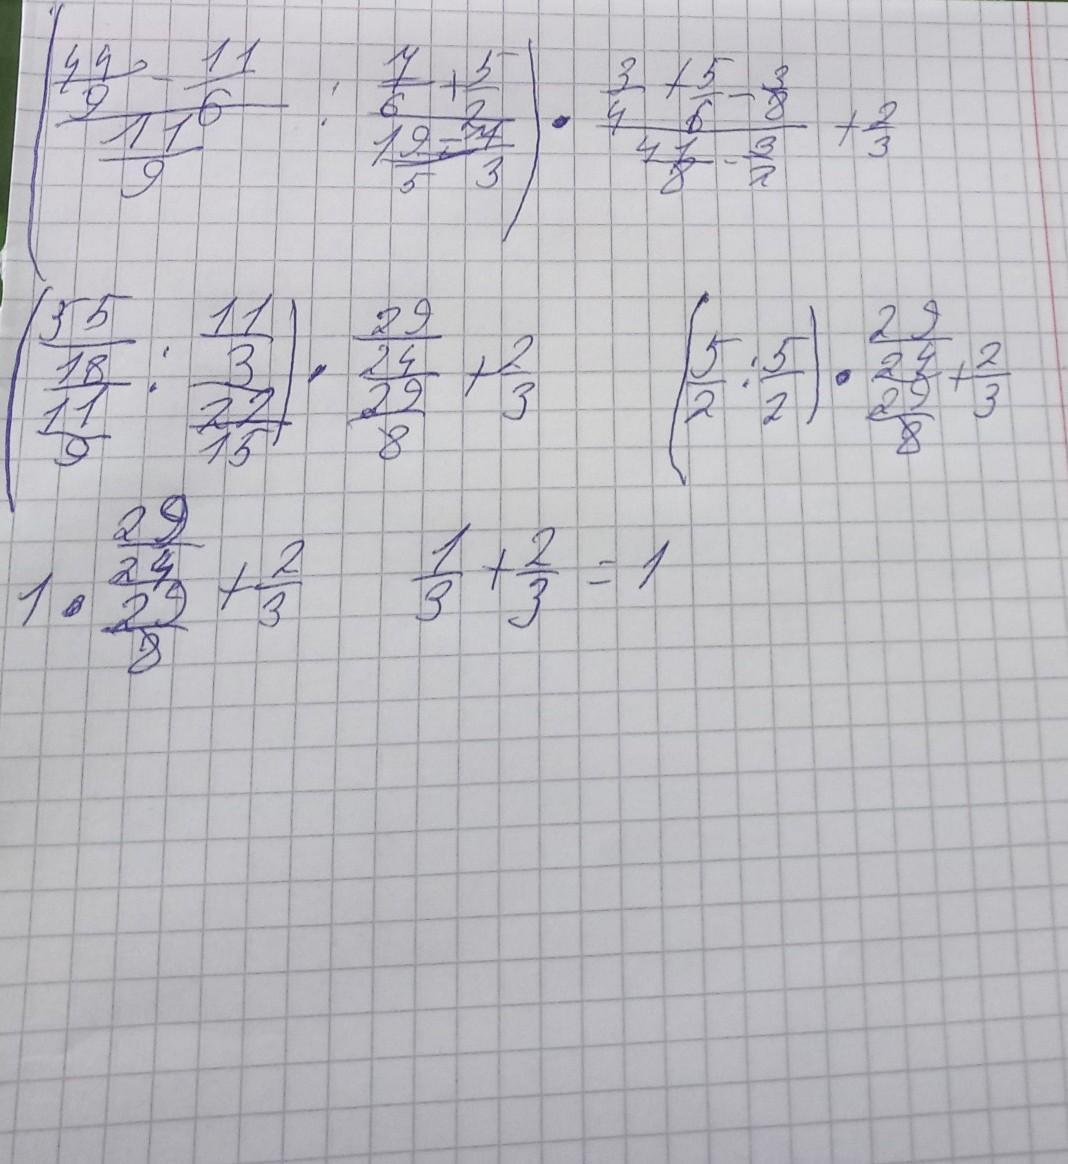 ((44/9 - 11/6)/(11/9) : (7/6 + 5/2)/(19/5 - 7/3)) · (3/4 + 5/6 - 3/8)/(4 1/8 - 3/2) + 2/3
((35/18)/(11/9) : (11/3)/(22/15)) · (29/24)/(29/8) + 2/3 (5/2 : 5/2) · (29/24)/(29/8) + 2/3
1 · (29/24)/(29/8) + 2/3 1/3 + 2/3 = 1